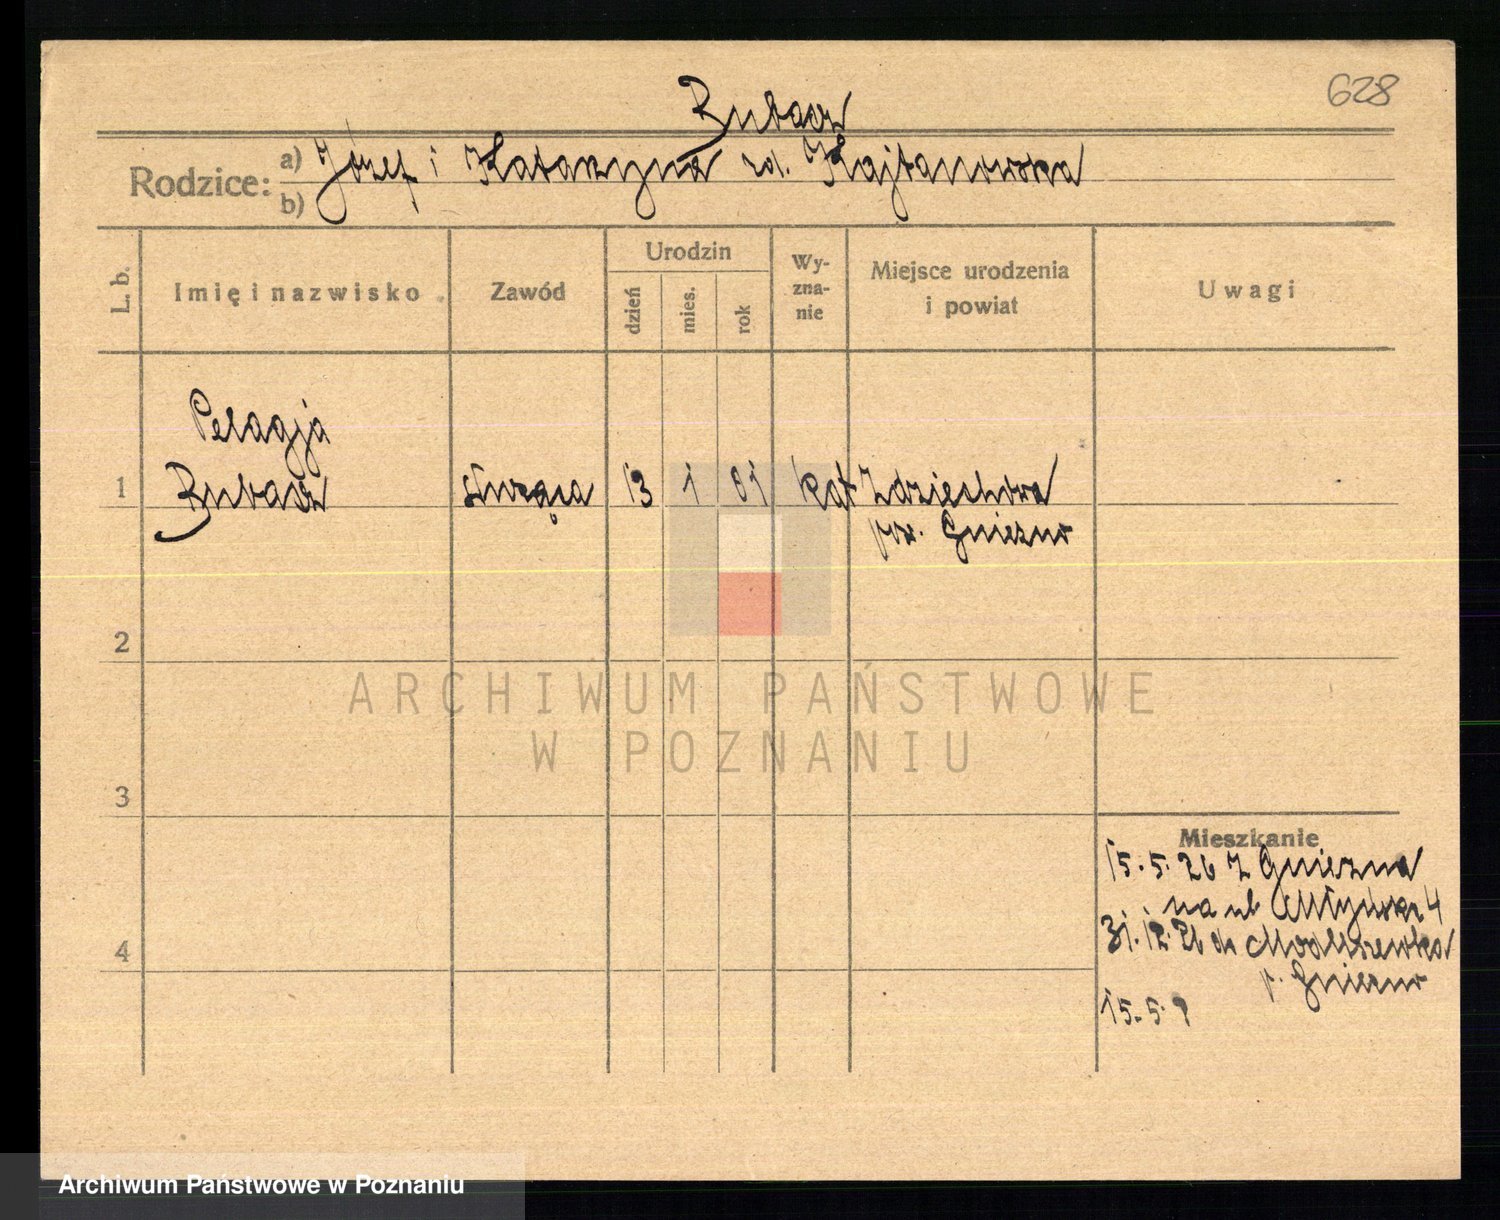 628
Rubacz
Rodzice: a) Józef i Katarzyna zd. Kajtanowska
b)
L. b.
Imię i nazwisko
Zawód
Urodzin
dzień
mies.
rok
Wy-
zna-
nie
Miejsce urodzenia
i powiat
Uwagi
Pelagja
1 Rubacz służąca 13 1 01 kat Zdziechowa
pow. Gniezno
2
ARCHIWUM PAŃSTWOWE
W POZNANIU
3
Mieszkanie
15.5.26 z Gniezna
na ul Młyńska 4
31.12.26 do Modliszewka
p. Gniezno
4
15.5.
Archiwum Państwowe w Poznaniu